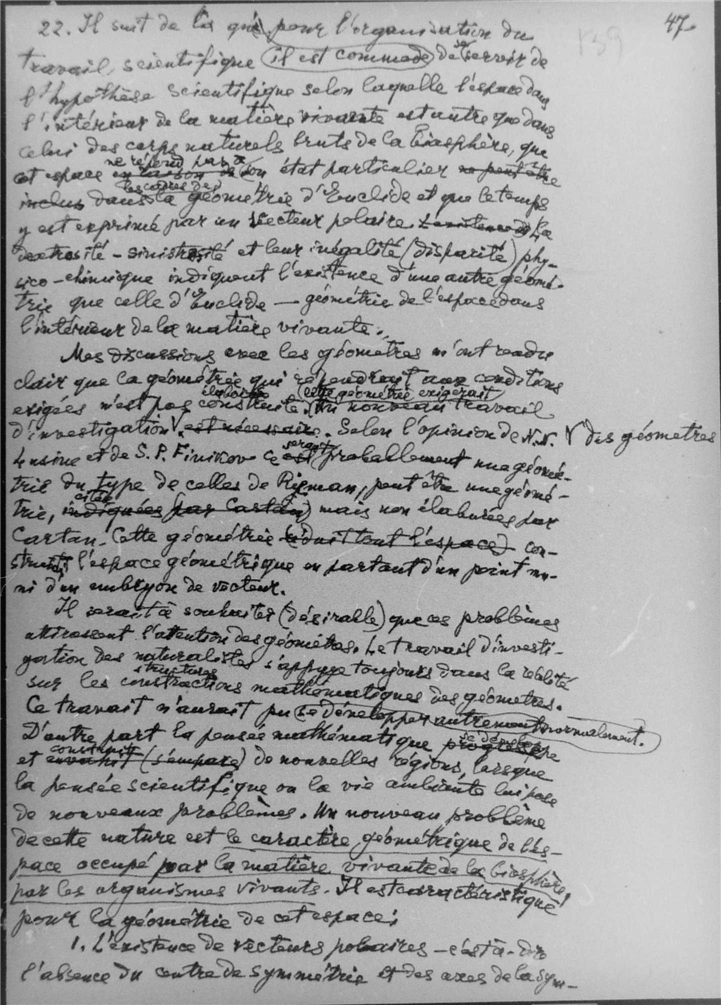 47.
139
22. Il suit de la que, pour l'organisation du
travail scientifique il est commode de se servir de
l'hypothèse scientifique selon laquelle l'espace dans
l'intérieur de la matière vivante est autre que dans
celui des corps naturels bruts de la biosphère, que
ne répond pas à
cet espace en raison de son état particulier ne peut être
les cadres de
inclus dans la géométrie d'Euclide et que le temps
y est exprimé par un vecteur polaire. L'existence de La
dextrosité – sinistrosité et leur inégalité (disparité) phy-
sico-chimique indiquent l'existence d'une autre géomé-
trie que celle d'Euclide — géométrie de l'espace dans
l'intérieur de la matière vivante.
Mes discussions avec les géomètres m'ont rendu
clair que la géométrie qui répondrait aux conditions
élaborée cette géométrie exigerait
exigées n'est pas construite. Un nouveau travail
d'investigation est nécessaire. Selon l'opinion de N.N. V des géometres
serait
Lusine et de S.P. Finikov ce est probablement une géomé-
trie du type de celles de Rieman, peut être une géomé-
citées
trie, indiquées (par Cartan) mais non élaborées par
Cartan. Cette géométrie réduit tout l'espace) con-
struit l'espace géométrique en partant d'un point mu-
ni d'un embryon de vecteur.
Il serait à souhaiter (désirable) que ces problèmes
attirassent l'attention des géomètres. Le travail d'investi-
gation des naturalistes s'appuye toujours dans la réalité
structures
sur les constructions mathématiques des géomètres.
Ce travail n'aurait pu se développer autrement normalement.
D'autre part la pensée mathématique progresse
se développe
et envahit (s'empare) de nouvelles régions, lorsque
la pensée scientifique ou la vie ambiante lui pose
de nouveaux problèmes. Un nouveau problème
de cette nature est le caractère géométrique de l'es-
pace occupé par la matière vivante de la biosphère,
par les organismes vivants. Il est caractéristique
pour la géométrie de cet espace:
1. L'existence de vecteurs polaires – c'est à-dire
l'absence du centre de symmétrie et des axes de la sym-